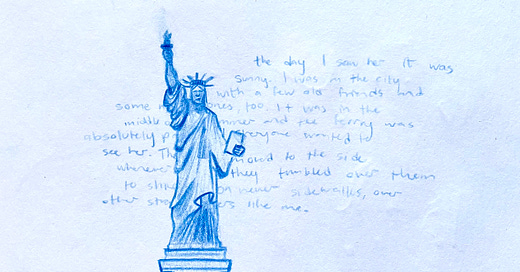 the day I saw her it was
sunny. I was in the city
with a few old friends and
some ones, too. It was in the
middle mmer and the ferry was
absolutely p everyone wanted to
see her. The moved to the side
whenever they tumbled over them
to on never sidewalks, over
other s ers like me.